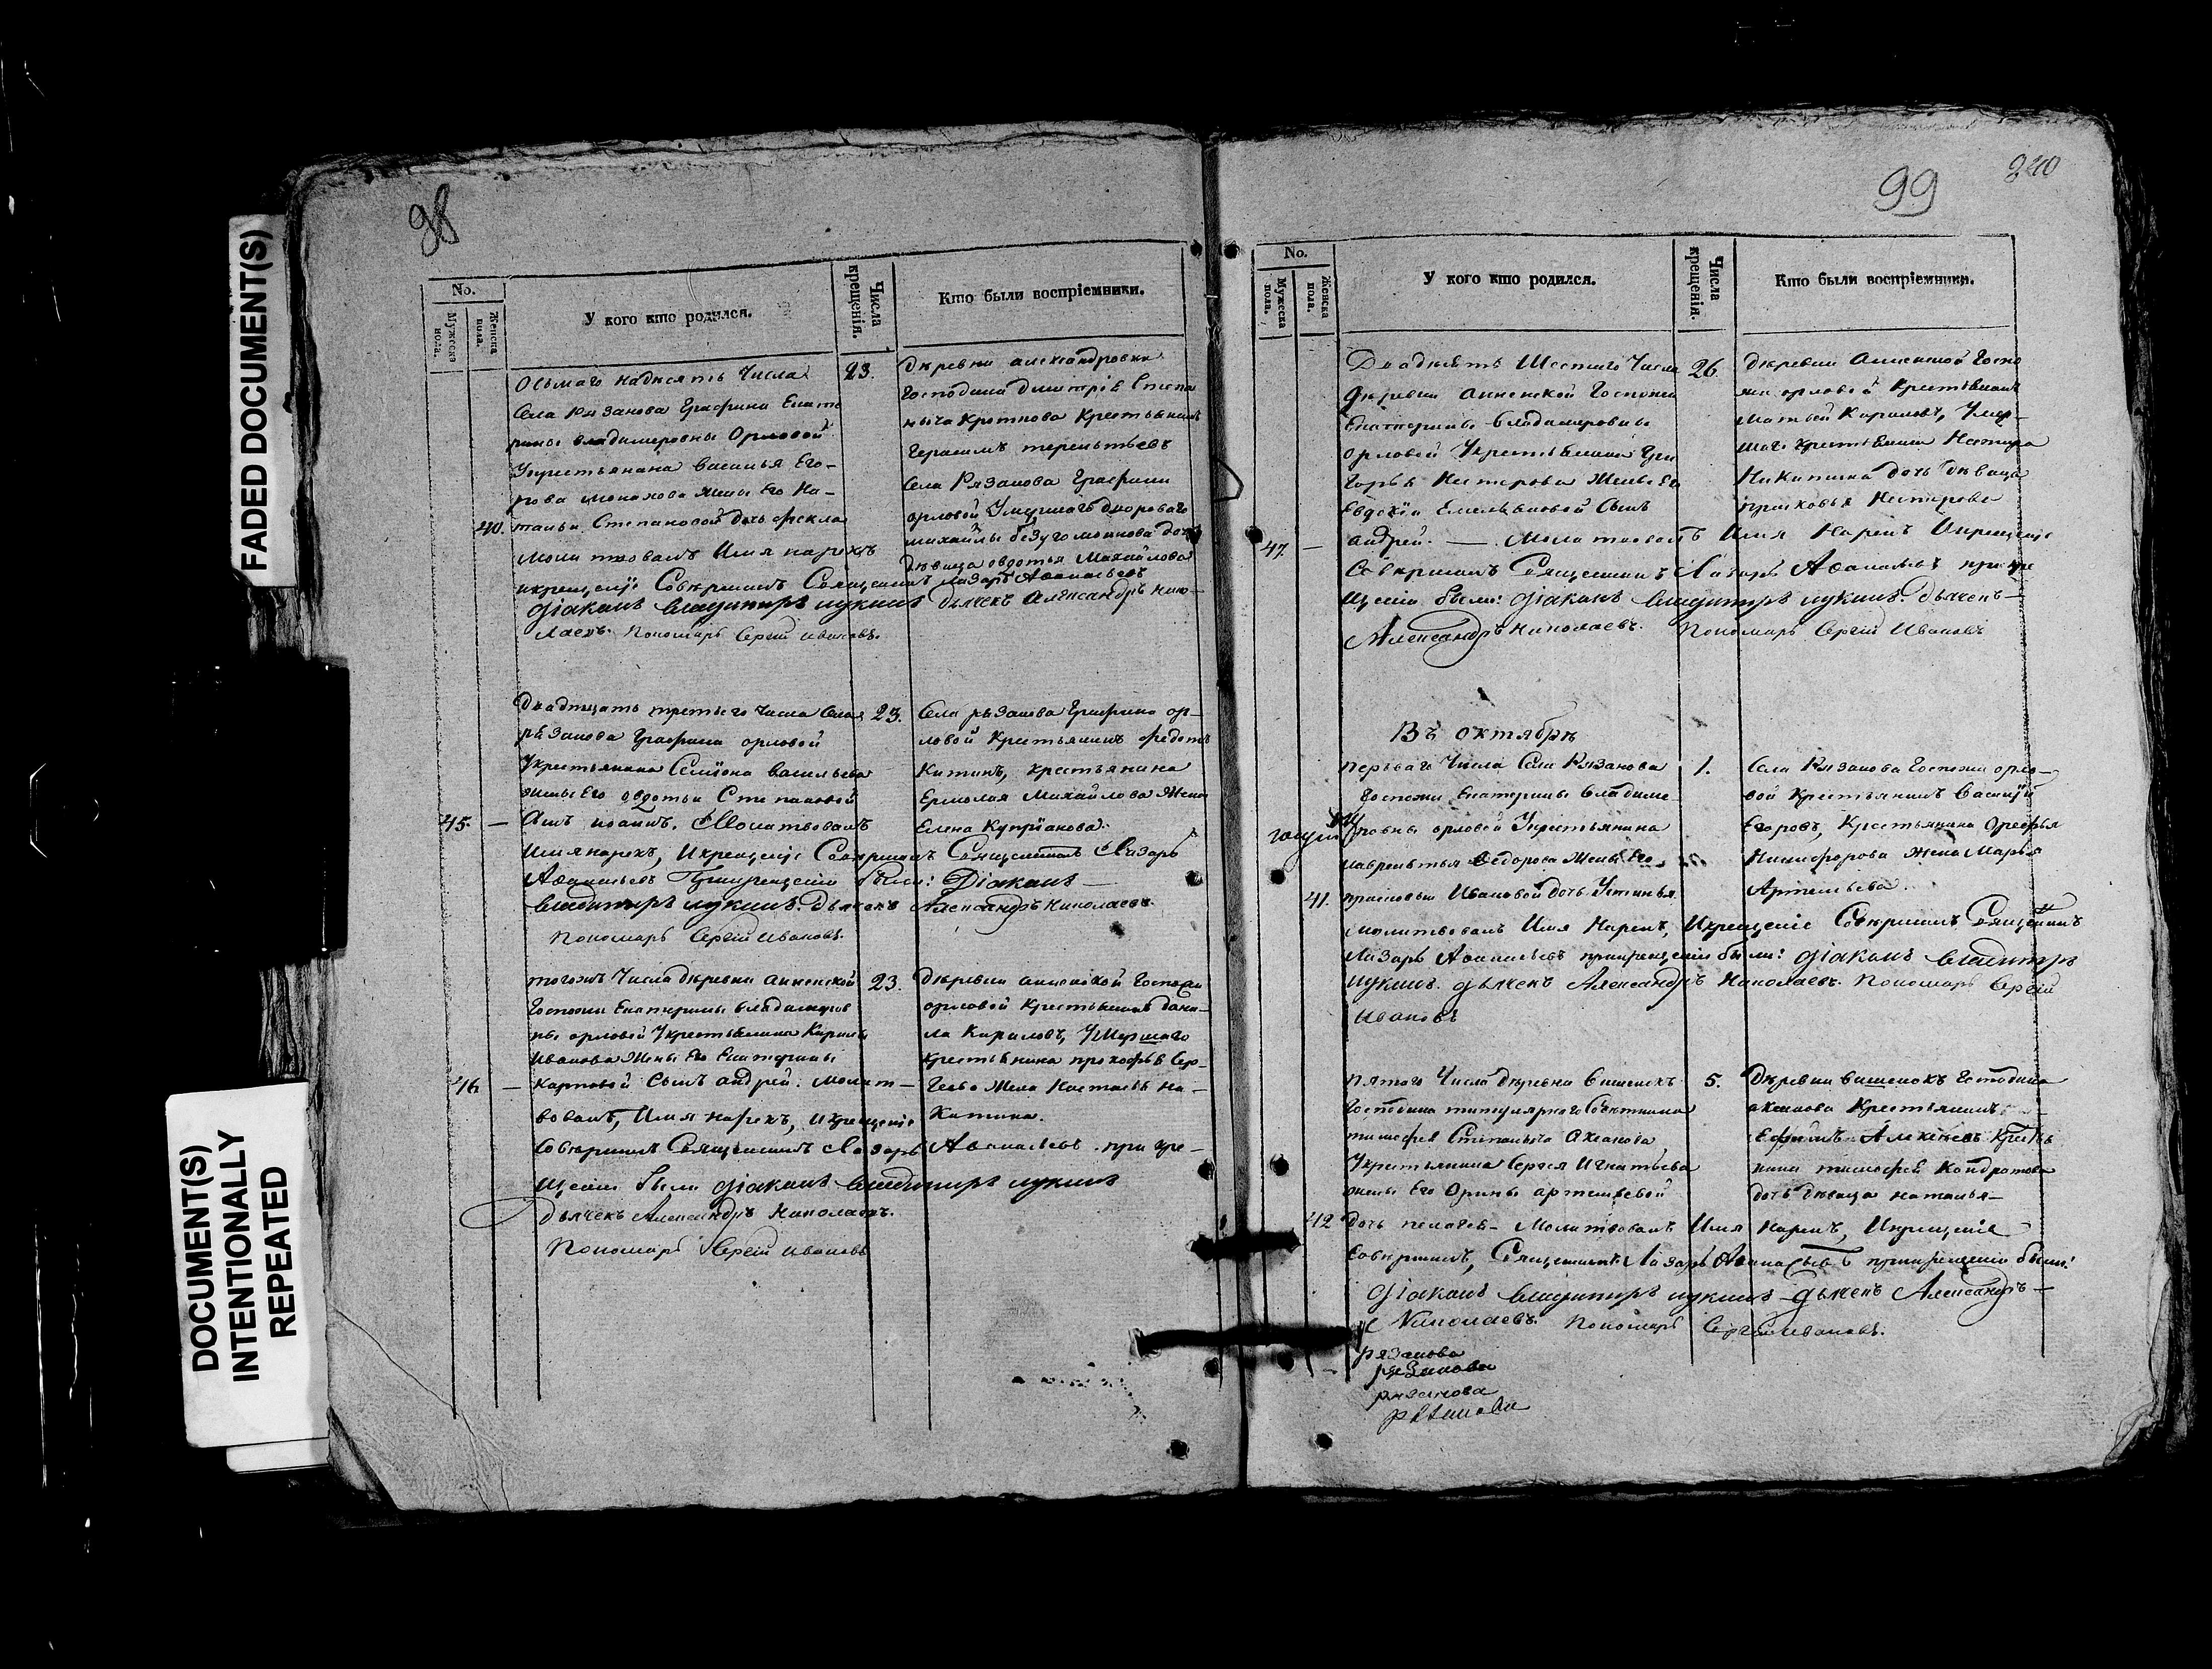 FADED DOCUMENT(S)
DOCUMENT(S)
INTENTIONALLY
REPEATED
98
No.
Мужеска пола.
Женска пола.
У кого кто родился.
Числа крещенія.
Кто были воспріемники.
Осьмаго надцсять Числа
Села Рязанова Графини Екате
рины владимеровны Орловой
Укрестьянина василья Его-
рова монахова жены Его На-
40.
тальи Степановой дочь фекла
молитвовалъ Имя нарекъ
икрещеніе Совершилъ Священникъ лазарь Аѳанасьевъ
Діаконъ владимиръ лукинъ дьячекъ Александръ Нико-
лаевъ. Пономарь Сергій ивановъ.
23.
Деревни александровки
Господина дмитрія Степа
ныча Кроткова Крестьянинъ
Герасимъ терентьевъ
Села Рязанова Графини
орловой Умершаго двороваго
михайлы безугомоннова дочь
девица овдотья Михайлова
Двадцать третьего числа Села
рязанова Графини орловой
Укрестьянина Семіона васильева
жены Его овдотьи Степановой
45. —
Сынъ иоаннъ. Молитвовалъ
Имя нарекъ, Икрещеніе Совершилъ Священникъ Лазарь
Аѳанасьевъ Прикрещеніи были: Діаконъ —
владимиръ лукинъ. Дьячекъ Александръ Николаевъ.
Пономарь Сергій ивановъ.
23.
Села рязанова Графини ор-
ловой Крестьянинъ федотъ
Китинъ, крестьянина
Ермолая Михайлова Жена
Елена Купріанова.
тогожъ Числа деревни анненской
Госпожи Екатерины владимеров
ны орловой Укрестьянина Кирилы
Иванова Жены Его Екатерины
46 —
Карповой Сынъ андрей. молит-
вовалъ, Имя нарекъ, икрещеніе
Совершилъ Священникъ Лазарь Аѳанасьевъ. при кре-
щеніи были діаконъ владимиръ лукинъ
дьячекъ Александръ Николаевъ.
Пономарь Сергій ивановъ
23.
Деревни анненской Госпожи
орловой Крестьянинъ дани-
ла Кириловъ, Умершаго
крестьянина прокофья Сер-
геева Жена Настасья на-
Китина.
99
240
No.
Мужеска пола.
Женска пола.
У кого кто родился.
Числа крещенія.
Кто были воспріемники.
Двадцать Шестаго Числа
Деревни анненской Госпожи
Екатерины владимеровны
орловой Укрестьянина Гри
горья Нестерова Жены Его
Евдокіи Емельяновой Сынъ
47. —
андрей. — Молитвовалъ Имя Нарекъ Икрещеніе
Совершилъ Священникъ Лазарь Аѳанасьевъ прикре
щеніи были: діаконъ владимиръ лукинъ. дьячекъ —
Александръ Николаевъ. Пономарь Сергій Ивановъ
26.
деревни Анненской Госпо
жи орловой Крестьянинъ
матвей Кириловъ, Умер-
шаго крестьянина Нестера
Никитина дочь девица
прасковья Нестерова
Въ октябре
перваго Числа Села Рязанова
Госпожи Екатерины владиме-
ровны орловой Укрестьянина
лаврентья Ѳедорова Жены Его
41.
прасковьи Ивановой дочь Устинья
молитвовалъ Имя Нарекъ, Икрещеніе Совершилъ Священникъ
Лазарь Аѳанасьевъ прикрещеніи были: діаконъ владимиръ
лукинъ. дьячекъ Александръ Николаевъ. Пономарь Сергій
Ивановъ
1.
Села Рязанова Госпожи орло-
вой Крестьянинъ Василій
Егоровъ, Крестьянина Орефья
Никифорова Жена Марья
Артемьева.
пятого Числа деревни вишенокъ
Господина титулярного Советника
тимофея Степаныча Аксакова
Укрестьянина Сергея Игнатьева
жены Его Орины артемьевой
42
дочь пелагея — Молитвовалъ Имя Нарекъ, Икрещеніе
Совершилъ, Священникъ Лазарь Аѳанасьевъ прикрещеніи были:
діаконъ владимиръ лукинъ — дьячекъ Александръ —
Николаевъ. Пономарь Сергій ивановъ.
5.
Деревни вишенокъ Господина
аксакова Крестьянинъ
Ефимъ Алексеевъ Кресть
нина тимофея Кондратова
дочь девица наталья —
рязанова
рязанова
рязанова
рязанова